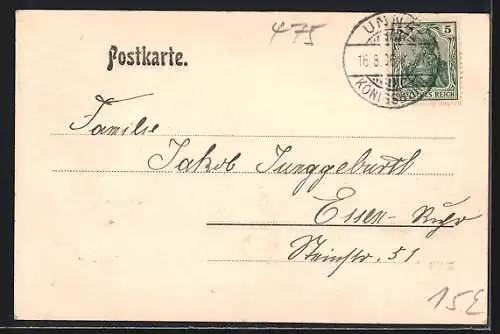 475
UNNA
5
Postkarte.
16.8.06
KÖNIGSBORN
DEUTSCHES REICH
Familie
Jakob Junggeburth
Essen-Ruhr
Steinstr. 51
15E